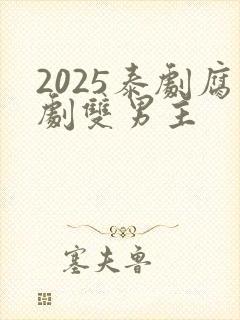 2025泰劇腐
劇雙男主
塞夫魯